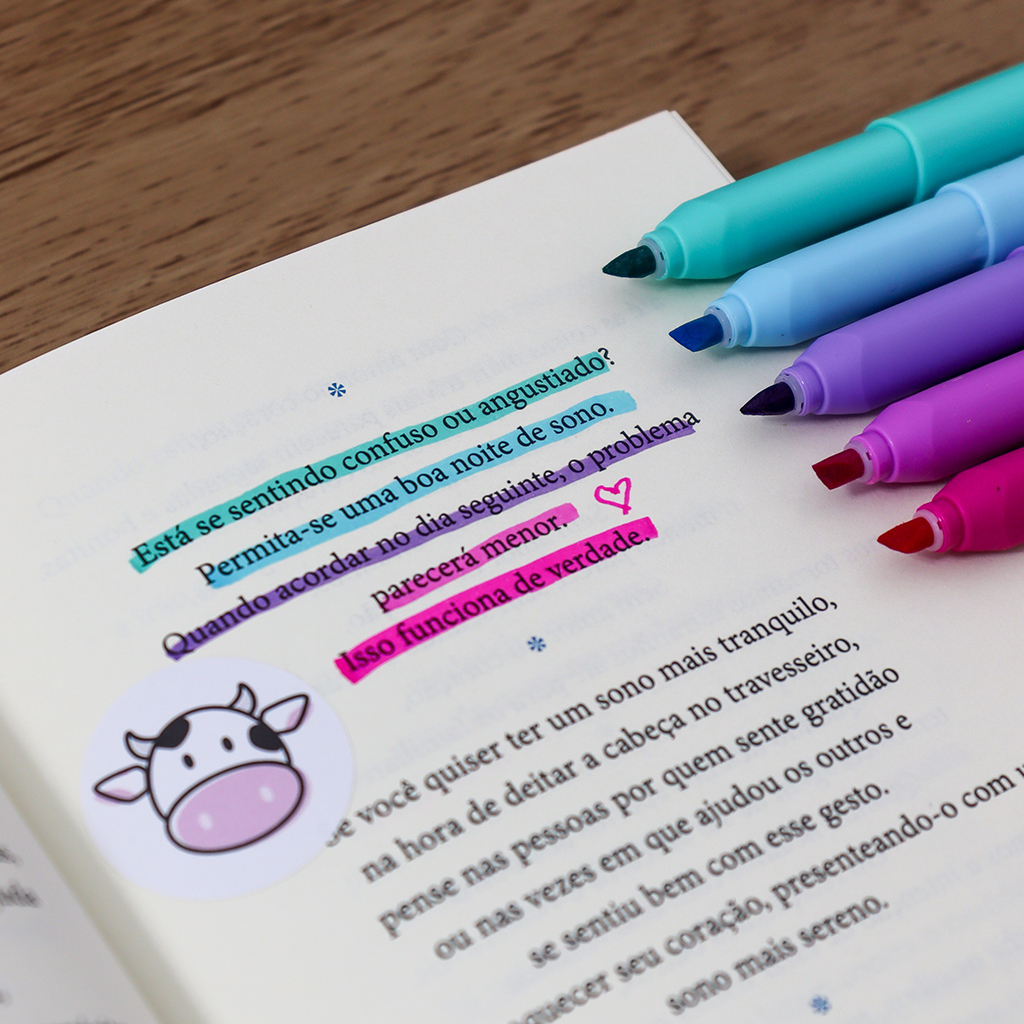 *
Está se sentindo confuso ou angustiado?
Permita-se uma boa noite de sono.
Quando acordar no dia seguinte, o problema
parecerá menor.
Isso funciona de verdade.
*
você quiser ter um sono mais tranquilo,
na hora de deitar a cabeça no travesseiro,
pense nas pessoas por quem sente gratidão
ou nas vezes em que ajudou os outros e
se sentiu bem com esse gesto.
seu coração, presenteando-o com
sono mais sereno.
*